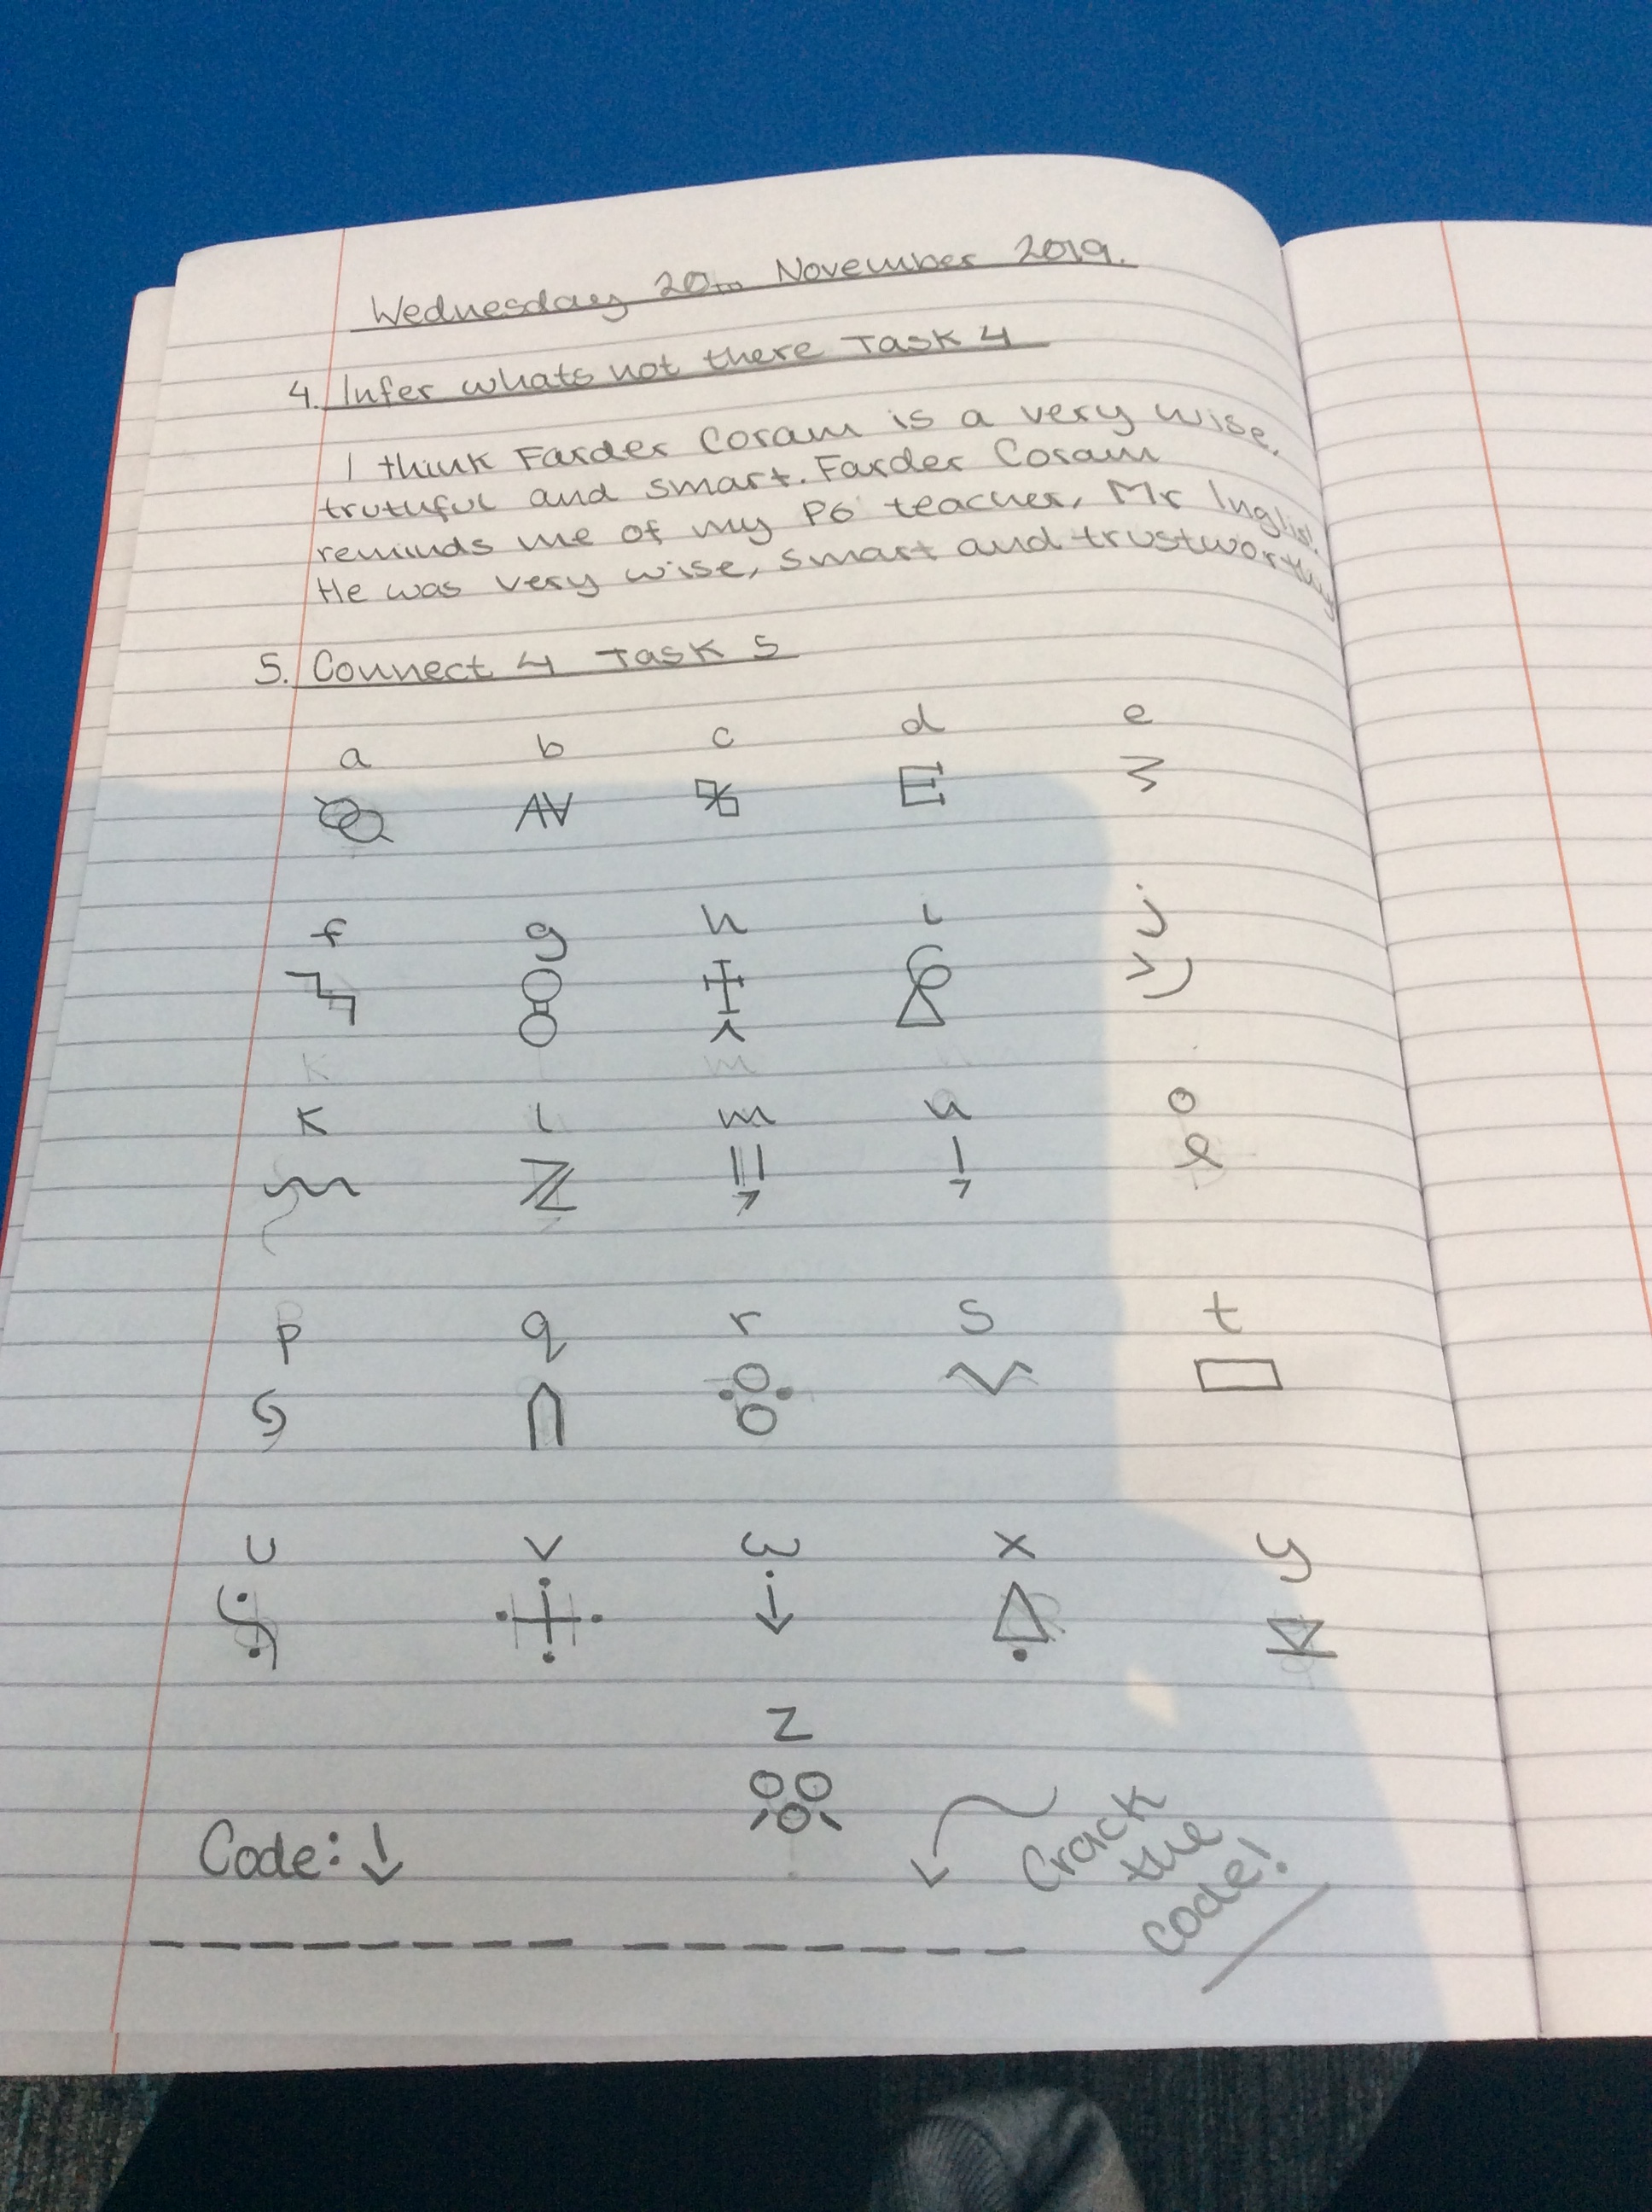 Wednesday 20th November 2019.
4. Infer whats not there Task 4
I think Farder Coram is a very wise,
truthful and smart. Farder Coram
reminds me of my P6 teacher, Mr Inglis!
He was very wise, smart and trustworthy
5. Connect 4 Task 5
a b c d e
f g h i j
k l m n o
p q r s t
u v w x y
z
Code: ↓
Crack
the
code!